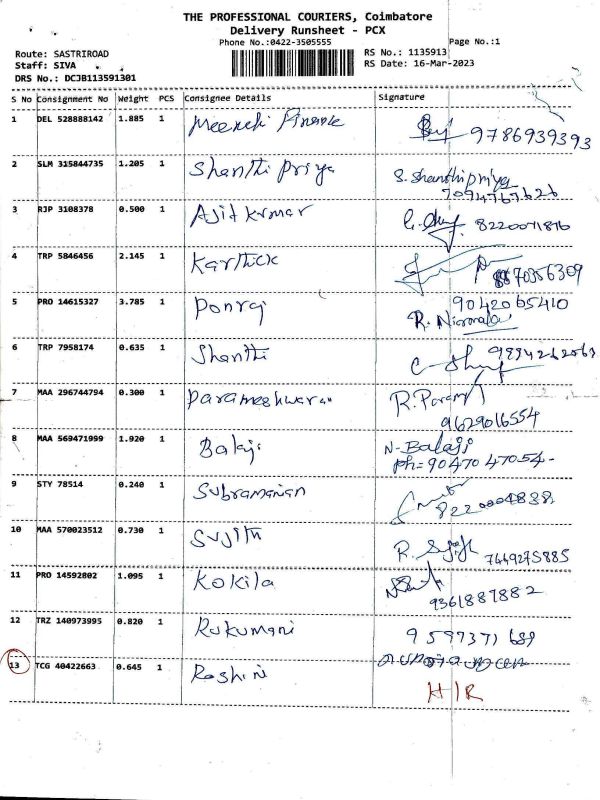 THE PROFESSIONAL COURIERS, Coimbatore
Delivery Runsheet - PCX
Phone No.:0422-3505555
Page No.:1
Route: SASTRIROAD
RS No.: 1135913
Staff: SIVA
RS Date: 16-Mar-2023
DRS No.: DCJB113591301
S No Consignment No Weight PCS Consignee Details Signature
1 DEL 528888142 1.885 1 Meenchi Finance 9786939393
2 SLM 315844735 1.205 1 Shanthi Priya S. Shanthi priya
7094767626
3 RJP 3108378 0.500 1 Ajit kumar 8220071876
4 TRP 5846456 2.145 1 Karthick 8870356309
5 PRO 14615327 3.785 1 Ponraj 9042065410
R. Nirmala
6 TRP 7958174 0.635 1 Shanthi
7 MAA 296744794 0.300 1 Parameshwaran R. Param
9629016554
8 MAA 569471999 1.920 1 Balaji N- Balaji
Ph:- 90470 47054-
9 STY 78514 0.240 1 Subramanian
10 MAA 570023512 0.730 1 Sujith R. Sujith 7449275885
11 PRO 14592802 1.095 1 Kokila
9361887882
12 TRZ 140973995 0.820 1 Rukumani 9597371689
13 TCG 40422663 0.645 1 Roshini
H/R